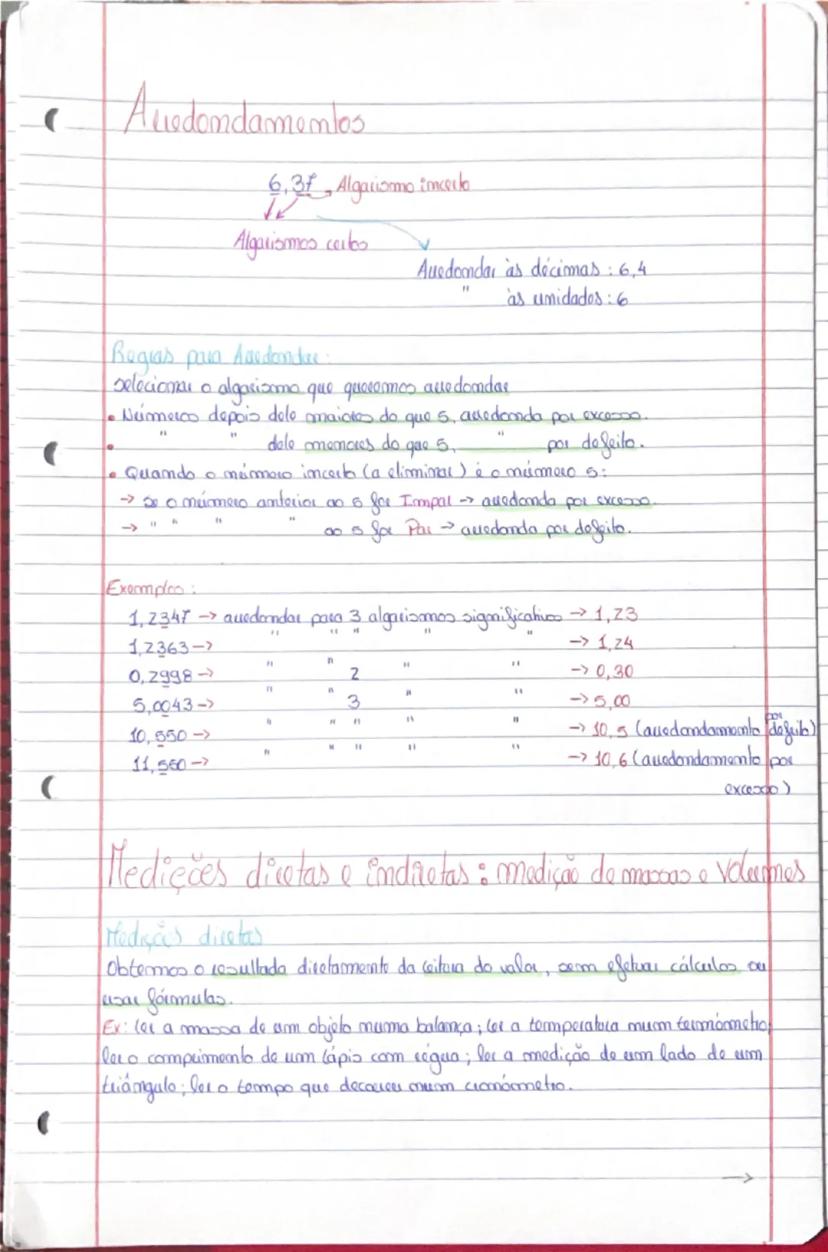 Arredondamentos
6,37 → Algarismo incerto
Algarismos certos
Arredondar às décimas : 6,4
" às unidades : 6
Regras para Arredondar:
Selecionar o algarismo que queremos arredondar
• Números depois dele maiores do que 5, arredonda por excesso.
• " " dele menores do que 5, " por defeito.
• Quando o número incerto (a eliminar) é o número 5:
→ Se o número anterior ao 5 for Ímpar → arredonda por excesso.
→ " " " " ao 5 for Par → arredonda por defeito.
Exemplos :
1,2347 → arredondar para 3 algarismos significativos → 1,23
1,2363 → " " " " " → 1,24
0,2998 → " " 2 " " → 0,30
5,0043 → " " 3 " " → 5,00
10,550 → " " " " " → 10,5 (arredondamento por defeito)
11,560 → " " " " " → 10,6 (arredondamento por
excesso)
Medições diretas e indiretas : medição de massas e volumes
Medições diretas
Obtemos o resultado diretamente da leitura do valor, sem efetuar cálculos ou
usar fórmulas.
Ex: ler a massa de um objeto numa balança; ler a temperatura num termómetro;
ler o comprimento de um lápis com régua ; ler a medição de um lado de um
triângulo; ler o tempo que decorreu num cronómetro.
→